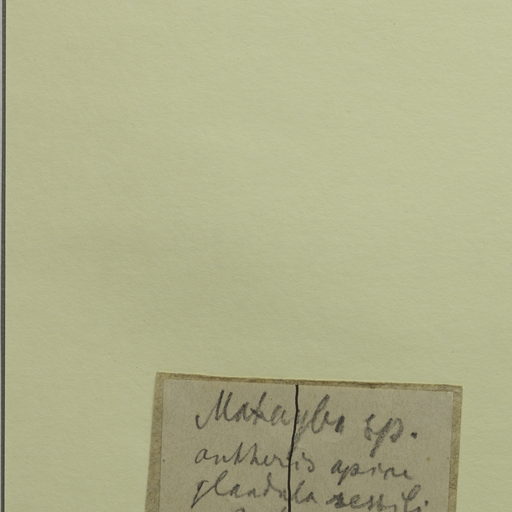 Matayba sp.
antheris apice
glandula sessili